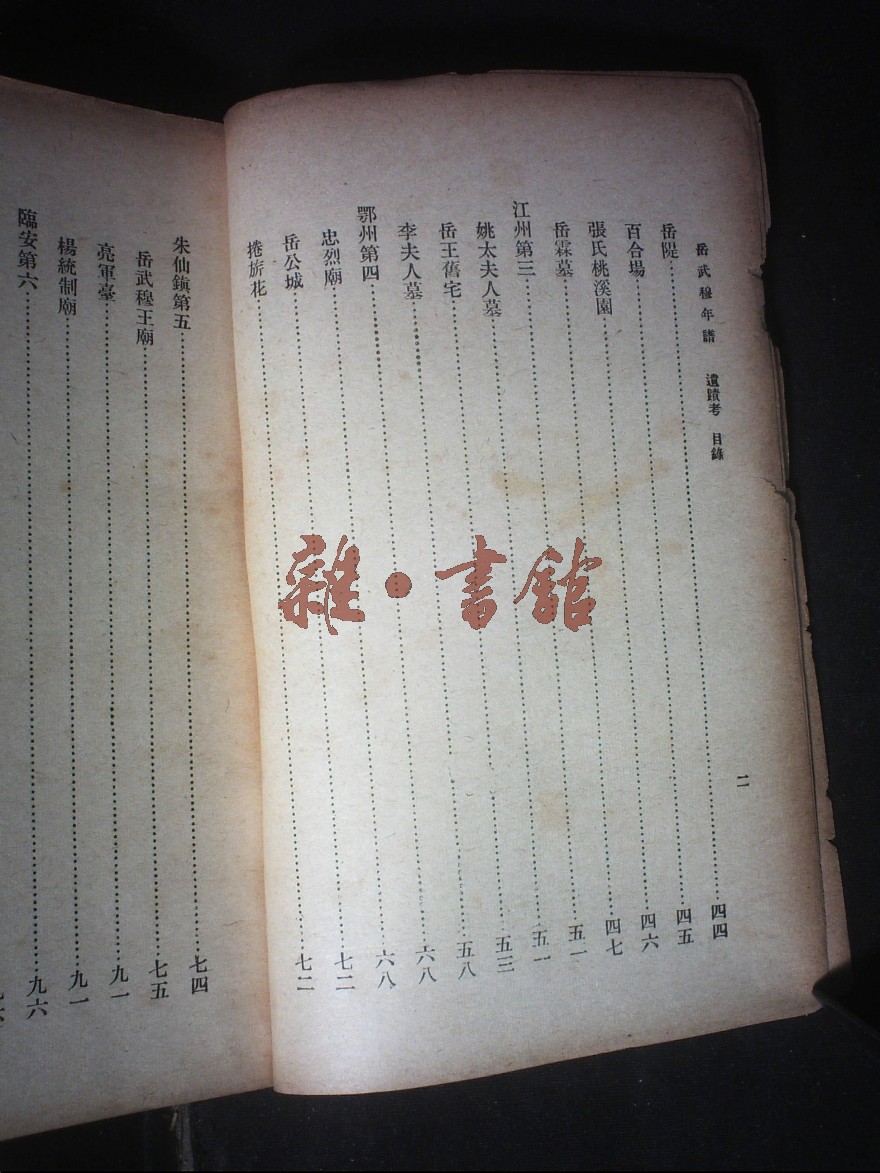 岳武穆年譜 遺蹟考 目錄 二
岳隄……四四
百合場……四五
張氏桃溪園……四六
岳霖墓……四七
江州第三……五一
姚太夫人墓……五一
岳王舊宅……五三
李夫人墓……五八
鄂州第四……六八
忠烈廟……六八
岳公城……七二
捲旂花……七二
朱仙鎮第五……七四
岳武穆王廟……七五
亮軍臺……九一
楊統制廟……九一
臨安第六……九六
雜·書館